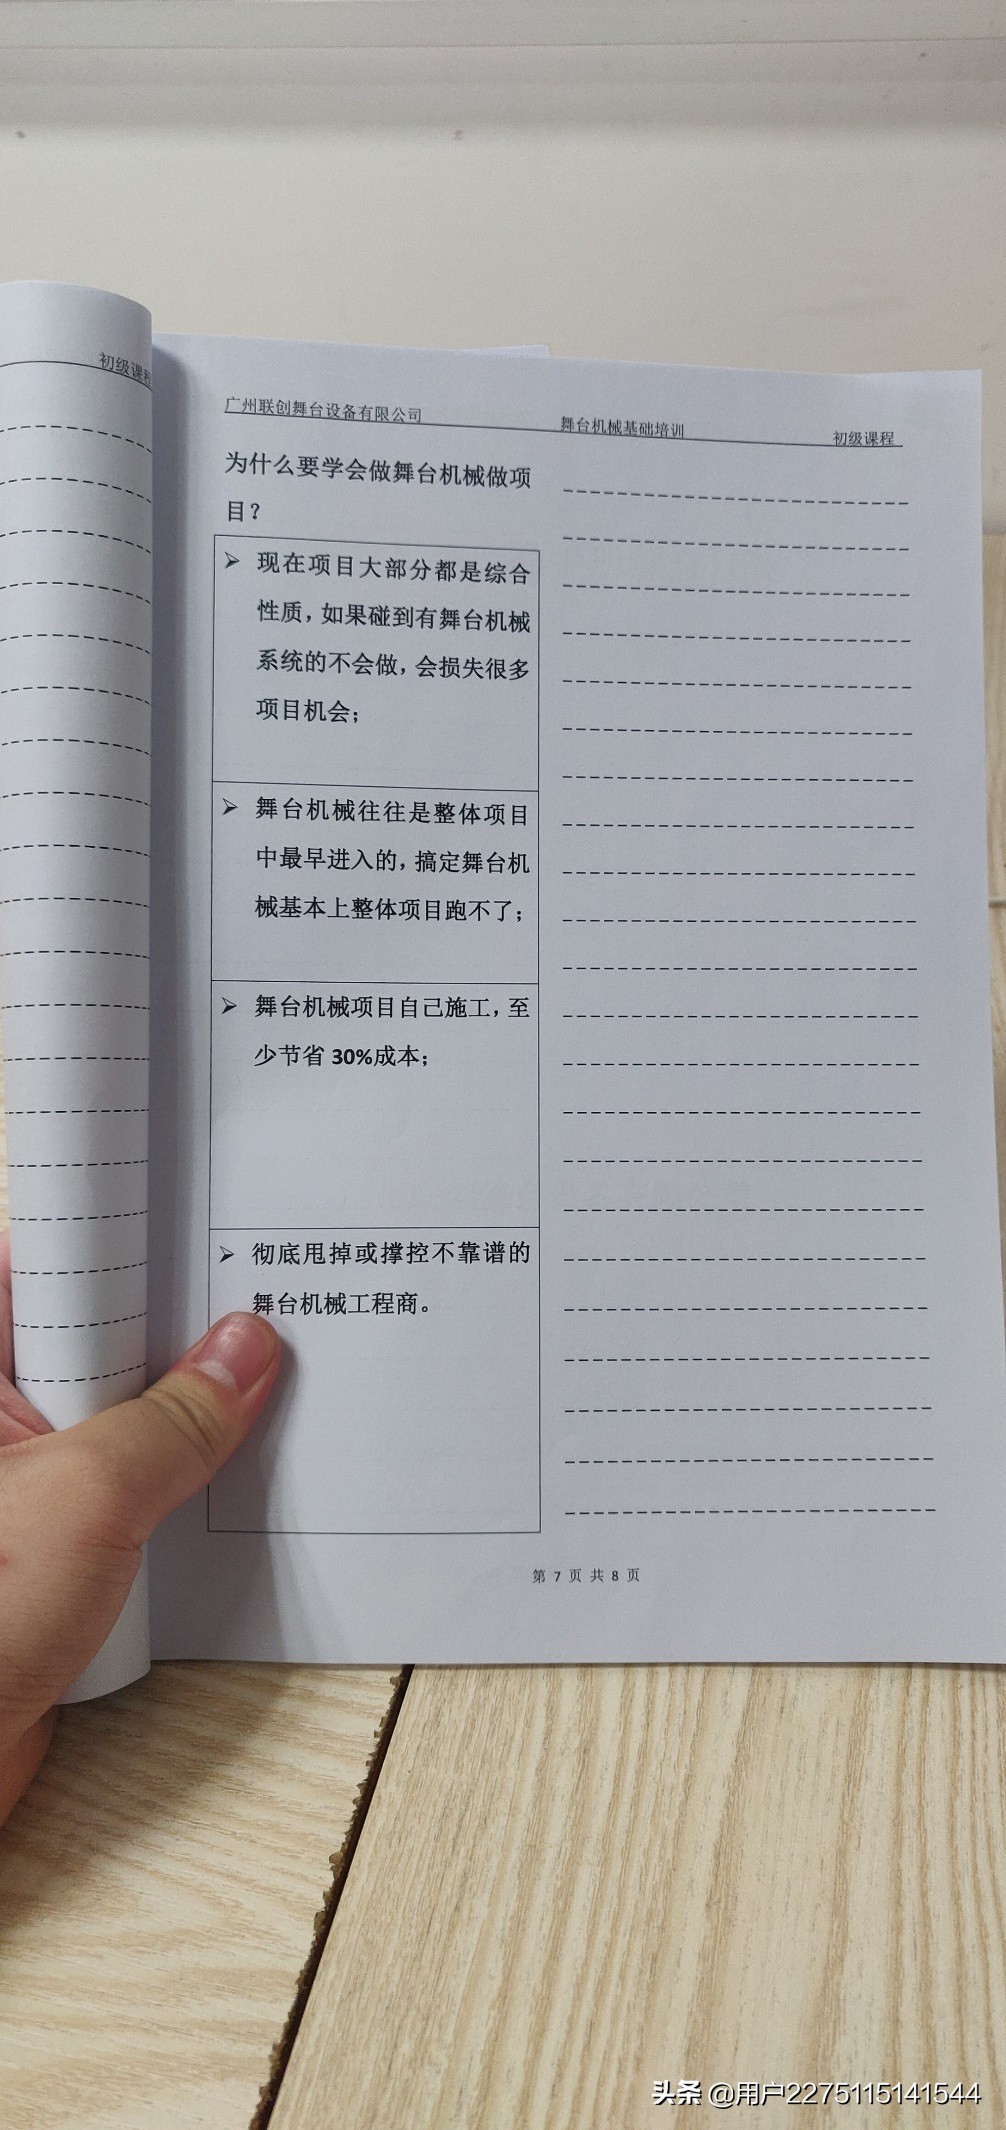 初级课程
广州联创舞台设备有限公司 舞台机械基础培训 初级课程
为什么要学会做舞台机械做项
目？
➢ 现在项目大部分都是综合
性质，如果碰到有舞台机械
系统的不会做，会损失很多
项目机会；
➢ 舞台机械往往是整体项目
中最早进入的，搞定舞台机
械基本上整体项目跑不了；
➢ 舞台机械项目自己施工，至
少节省 30%成本；
➢ 彻底甩掉或撑控不靠谱的
舞台机械工程商。
第 7 页 共 8 页
头条 @用户2275115141544